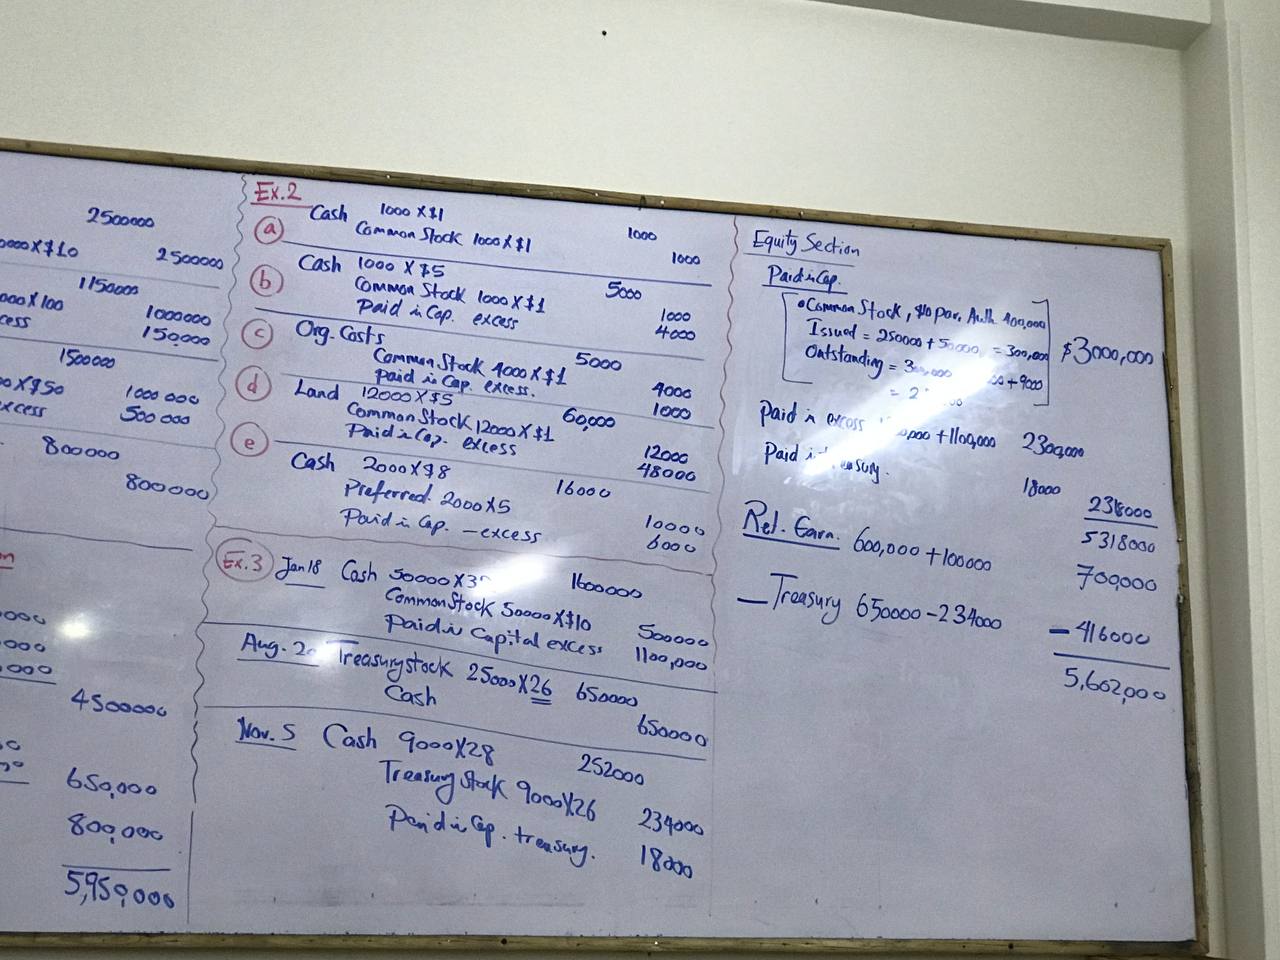 2500000
000X$10 2500000
1150000
000X100 1000000
cess 150,000
1500000
X$50 1000000
xcess 500000
800000
800000
000
4500000
650,000
800,000
5,950,000
Ex.2
(a) Cash 1000 X $1 1000
Common Stock 1000X$1 1000
(b) Cash 1000 X $5 5000
Common Stock 1000X$1 1000
Paid in Cap. excess 4000
(c) Org. Costs 5000
Common Stock 4000X$1 4000
Paid in Cap. excess. 1000
(d) Land 12000X$5 60,000
Common Stock 12000X$1 12000
Paid in Cap. excess 48000
(e) Cash 2000X$8 16000
Preferred 2000X5 10000
Paid in Cap. – excess 6000
Ex.3 Jan 18 Cash 50000X3 1600000
Common Stock 50000X$10 500000
Paid in Capital excess 1100,000
Aug. 2 Treasury stock 25000X26 650000
Cash 650000
Nov. 5 Cash 9000X28 252000
Treasury Stock 9000X26 234000
Paid in Cap. treasury. 18000
Equity Section
Paid in Cap.
• Common Stock, $10 par, Auth 400,000
Issued = 250000 + 50000 = 300,000 $3000,000
Outstanding = 3 ,000 + 9000
= 2
Paid in excess 000 + 1100,000 2300,000
Paid in treasury. 18000 2318000
5318000
Ret. Earn. 600,000 + 100000 700,000
– Treasury 650000 – 234000 – 416000
5,602,000